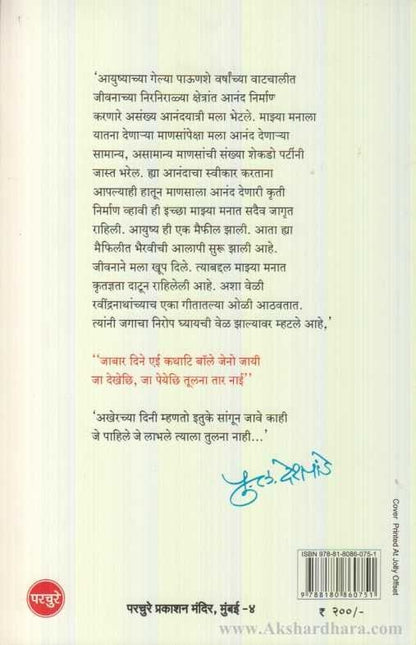 ‘आयुष्याच्या गेल्या पाऊणशे वर्षांच्या वाटचालीत
जीवनाच्या निरनिराळ्या क्षेत्रांत आनंद निर्माण
करणारे असंख्य आनंदयात्री मला भेटले. माझ्या मनाला
यातना देणाऱ्या माणसांपेक्षा मला आनंद देणाऱ्या
सामान्य, असामान्य माणसांची संख्या शेकडो पटींनी
जास्त भरेल. ह्या आनंदाचा स्वीकार करताना
आपल्याही हातून माणसाला आनंद देणारी कृती
निर्माण व्हावी ही इच्छा माझ्या मनात सदैव जागृत
राहिली. आयुष्य ही एक मैफील झाली. आता ह्या
मैफिलीत भैरवीची आलापी सुरू झाली आहे.
जीवनाने मला खूप दिले. त्याबद्दल माझ्या मनात
कृतज्ञता दाटून राहिलेली आहे. अशा वेळी
रवींद्रनाथांच्याच एका गीतातल्या ओळी आठवतात.
त्यांनी जगाचा निरोप घ्यायची वेळ झाल्यावर म्हटले आहे,’
‘‘जाबार दिने एई कथाटि बॉले जेनो जायी
जा देखेछि, जा पेयेछि तूलना तार नाई’’
‘अखेरच्या दिनी म्हणतो इतुके सांगून जावे काही
जे पाहिले जे लाभले त्याला तुलना नाही...’
पु. ल. देशपांडे
Cover Printed At Jolly Offset
ISBN 978-81-8086-075-1
9 788180 860751
₹ २००/-
परचुरे
परचुरे प्रकाशन मंदिर, मुंबई -४
www.Akshardhara.com